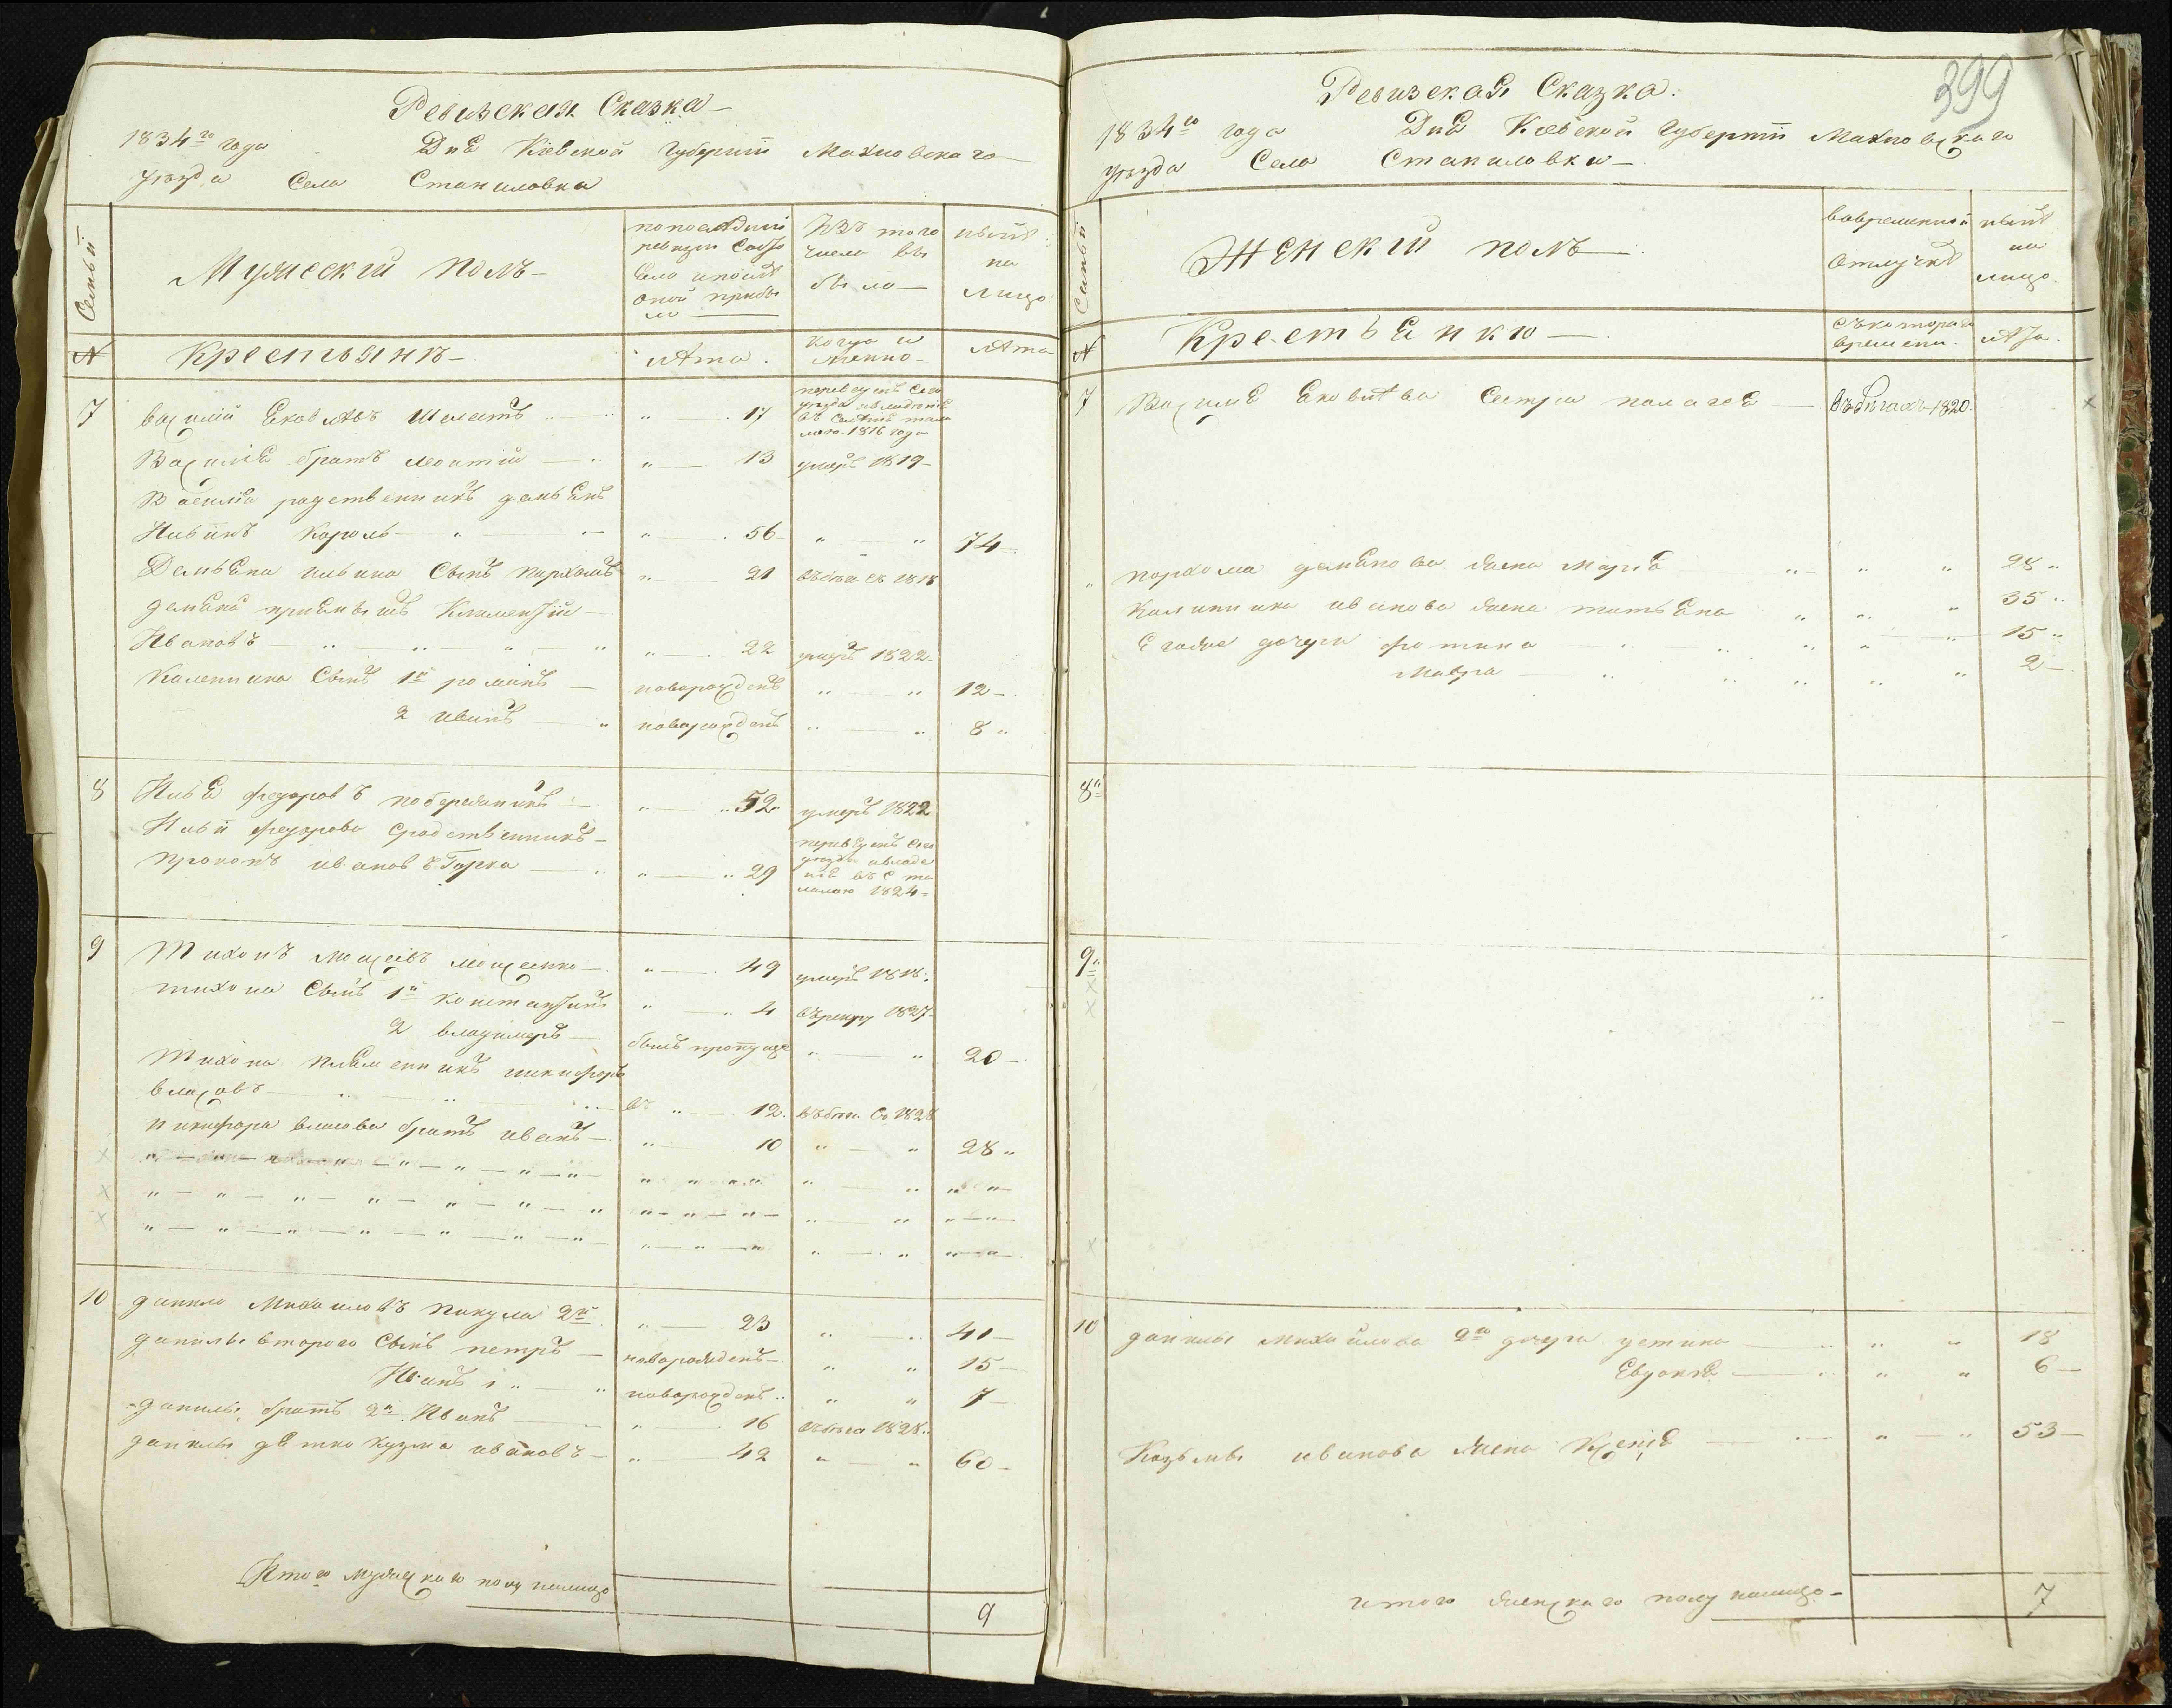 Ревизская Сказка
1834го года Дня Кіевской Губерніи Махновскаго
уезда Села Станиловки
Семьи
Мужескій полъ
по последней ревизіи состо
яло и после оной прибы
ло
Изъ того числа вы
было
ныне на лицо
№
Крестьянъ
лета
когда именно
лета
7
Василій Яковлевъ Шелестъ 17
1816 года
Василія братъ Леонтій 13 умеръ 1819
Василія родственникъ демьянъ
Ивановъ Король 56 74
Демьяна Иванова Сынъ пархомъ 21 въ бега съ 1818
демьяна Климентій
Ивановъ 22 умеръ 1822
Калениика Сынъ 1й романъ новорожденъ 12
2 иванъ новорожденъ 8
8
Илья Федоровъ побережникъ 52 умеръ 1822
Ильи Федорова сродственникъ
прокопъ ивановъ Гурка 29 1824
9
Тихонъ Моисеевъ 49 умеръ 1818
тихона Сынъ 1й константинъ 4 въ рекру 1827
2 владимеръ былъ пропуще 20
Тихона племенникъ никифоръ
власовъ 12 въ бега съ 1828
никифора власова братъ иванъ 10 28
10
данило Михаиловъ пикула 2й 23 41
данилы второго Сынъ петръ новорожденъ 15
Иванъ новорожденъ 7
данилы братъ 2й Иванъ 16 въ бега 1828
данилы дядко кузма ивановъ 42 60
Итого мужескаго полу налицо 9
399
Ревизская Сказка
1834го года Дня Кіевской Губерніи Махновскаго
уезда Села Станиловки
Семьи
Женскій полъ
во временной отлучке
ныне на лицо
№
Крестьянки
съ котораго времени
лета
7
Василія Яковлева Сестра палагея въ бегахъ 1820
пархома демянова жена Марія 28
Калиника иванова жена татьяна 35
Его же дочери фотина 15
Мавра 2
8
9
10
данилы Михайлова 2го дочери устина 18
Евдокія 6
Козьмы иванова жена Ксенія 53
итого женскаго полу налицо 7